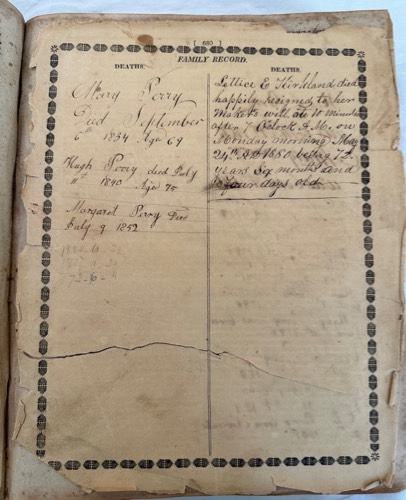 [ 680 ]
FAMILY RECORD.
DEATHS.
Mary Perry
Died September
6th 1834 Age 69
Hugh Perry died July
11th 1840 Age 75
Margaret Perry Died
July 9 1852
72-6-4
DEATHS.
Lettice E Kirkland died
happily resigned to her
Makers will at 10 minutes
after 7 Oclock A.M. on
Monday morning May
24th AD 1880 being 72
years Six months and
Four days old